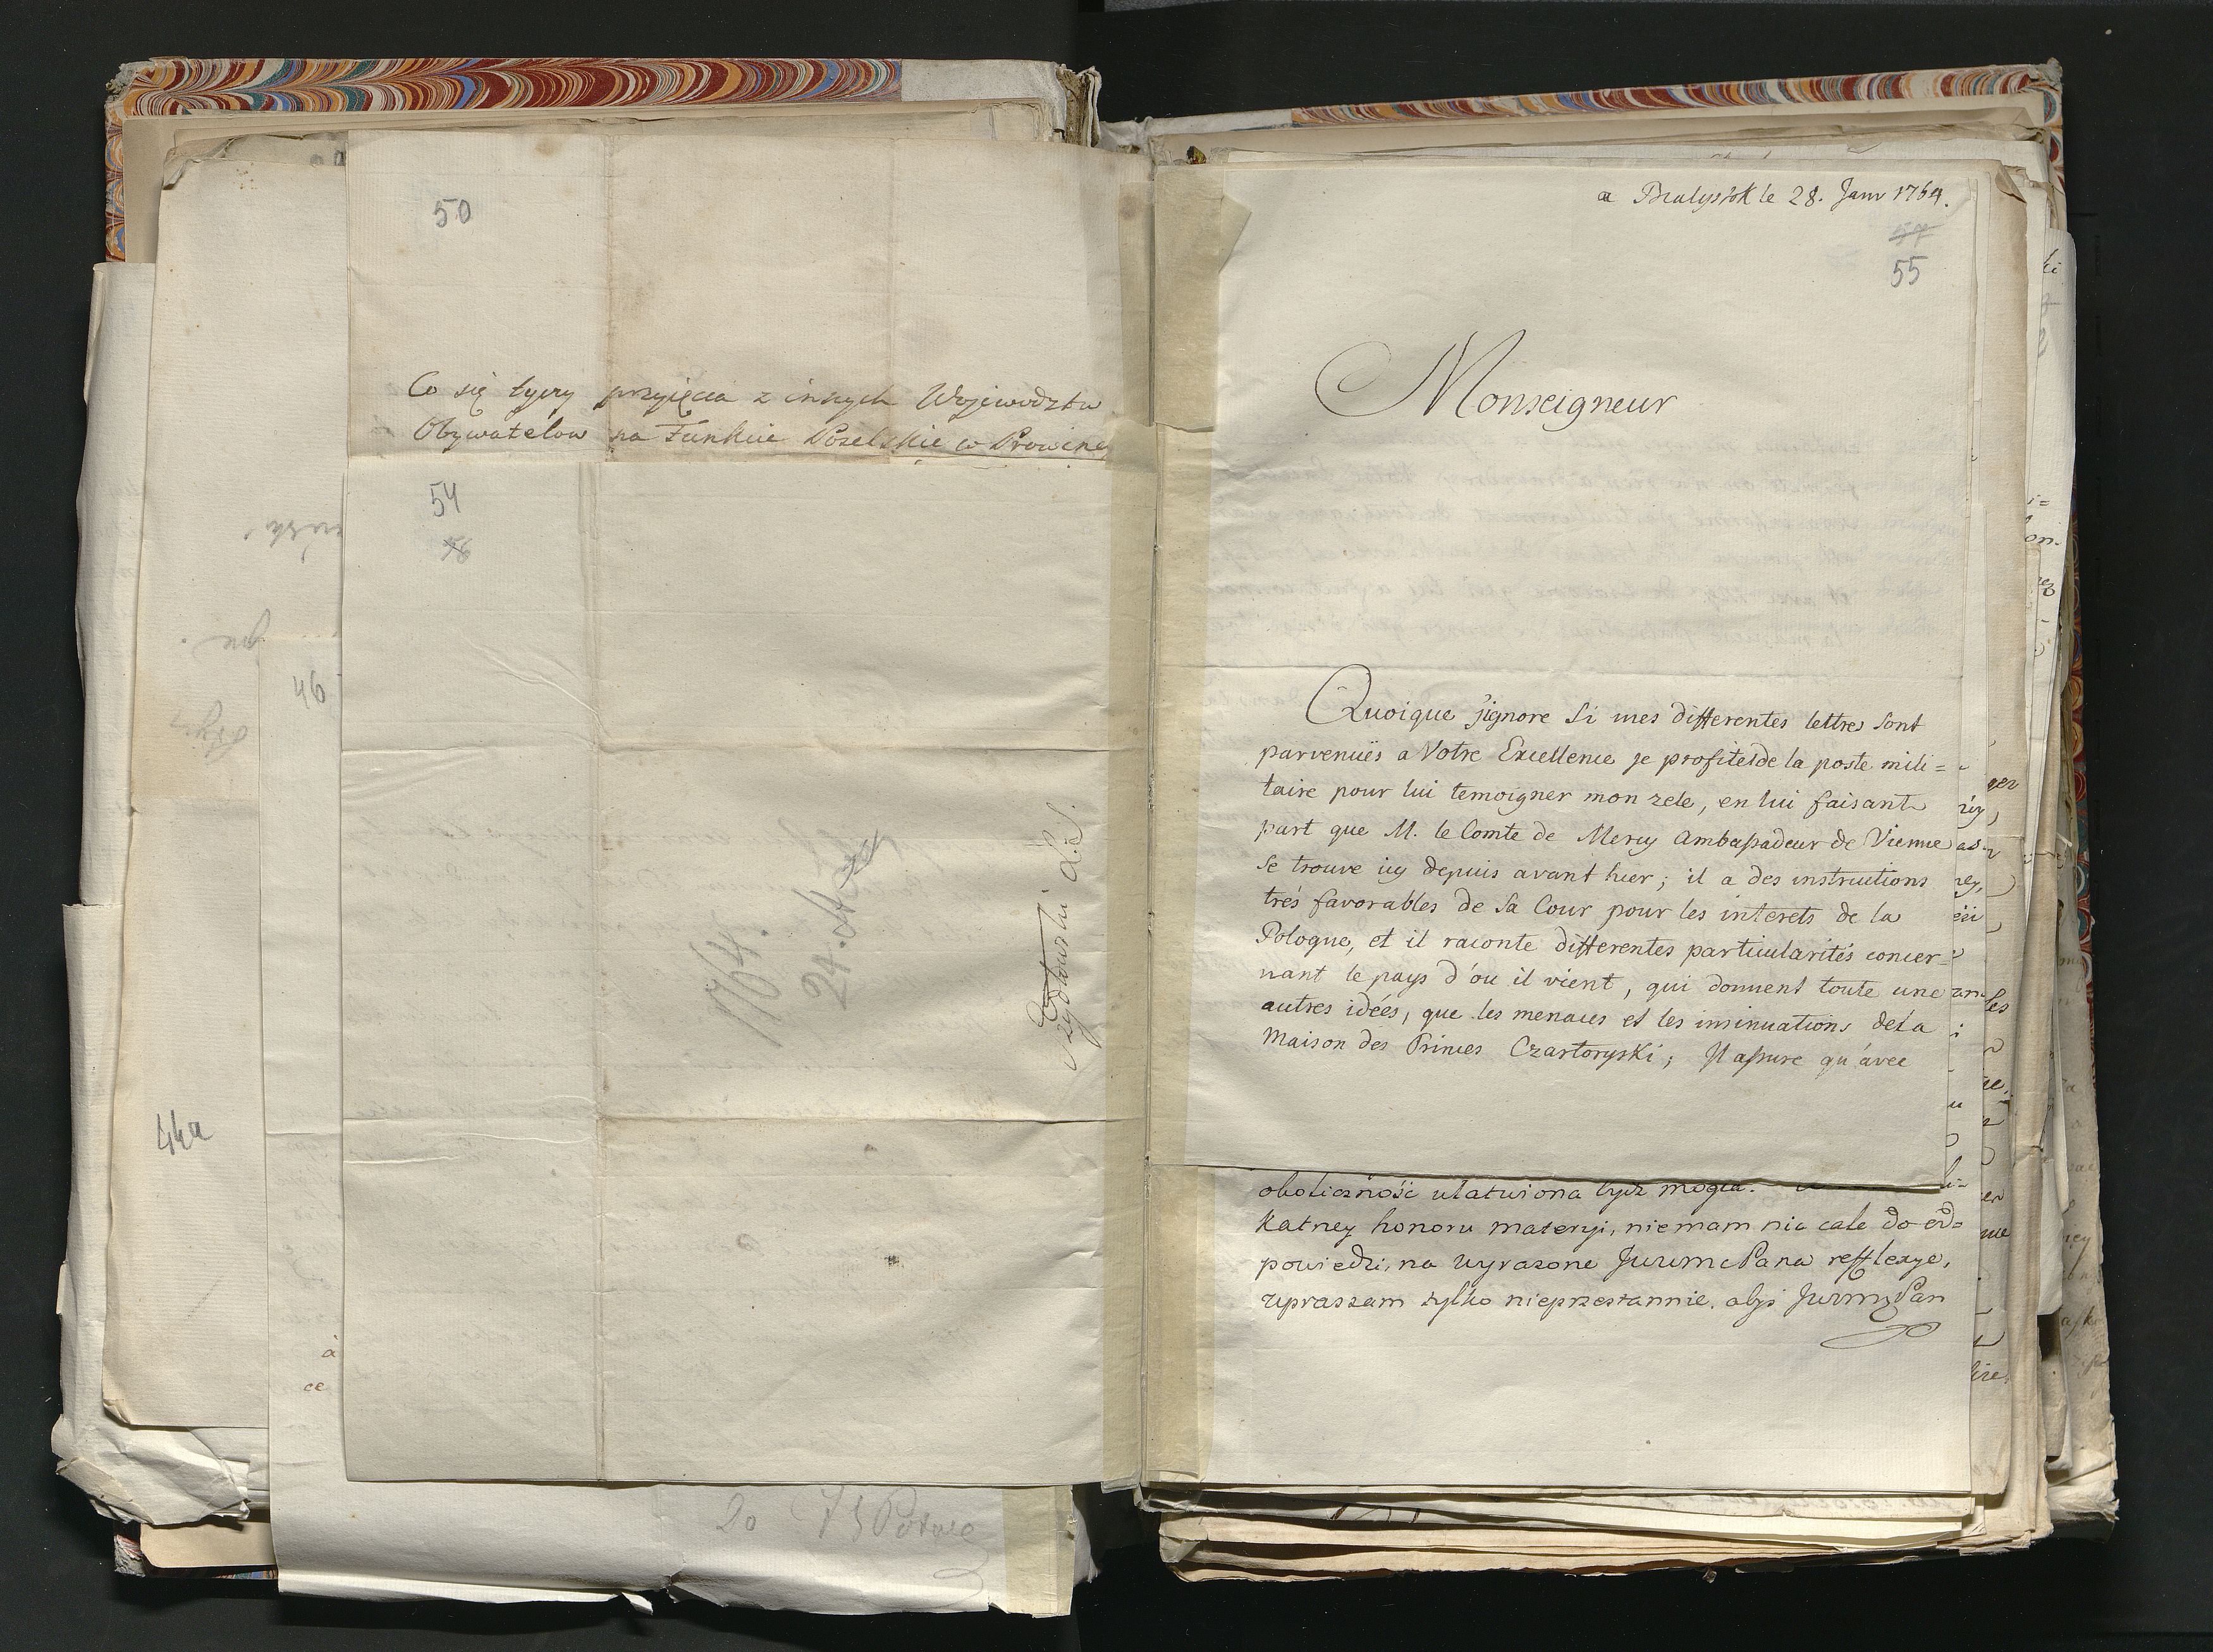 50
Co się tyczy przyięcia z innych Wojewodztw
Obywatelow na Funkcie Poselskie w Prowincy
54
1764.
24. Marca
46
44a
à
ce
Do
a Bialystok le 28. Janv 1764.
57
55
Monseigneur
Quoique j'ignore si mes differentes lettres sont
parvenuës a Votre Excellence je profite de la poste mili=
taire pour lui temoigner mon zele, en lui faisant
part que M. le Comte de Mercy Ambassadeur de Vienne
se trouve icy depuis avant hier; il a des instructions
trés favorables de sa Cour pour les interets de la
Pologne, et il raconte differentes particularités concer=
nant le pays d'ou il vient, qui donnent toute une
autres idées, que les menaces et les insinuations de la
Maison des Princes Czartoryski; Il assure qu'avec
okoliczność ulatwiona bydz mogła.
katney honoru materyi, niemam nic cale do od=
powiedzi, na wyrazone JwwmcPana refflexye,
upraszam tylko nieprzestannie, abyś Jwwmc Pan